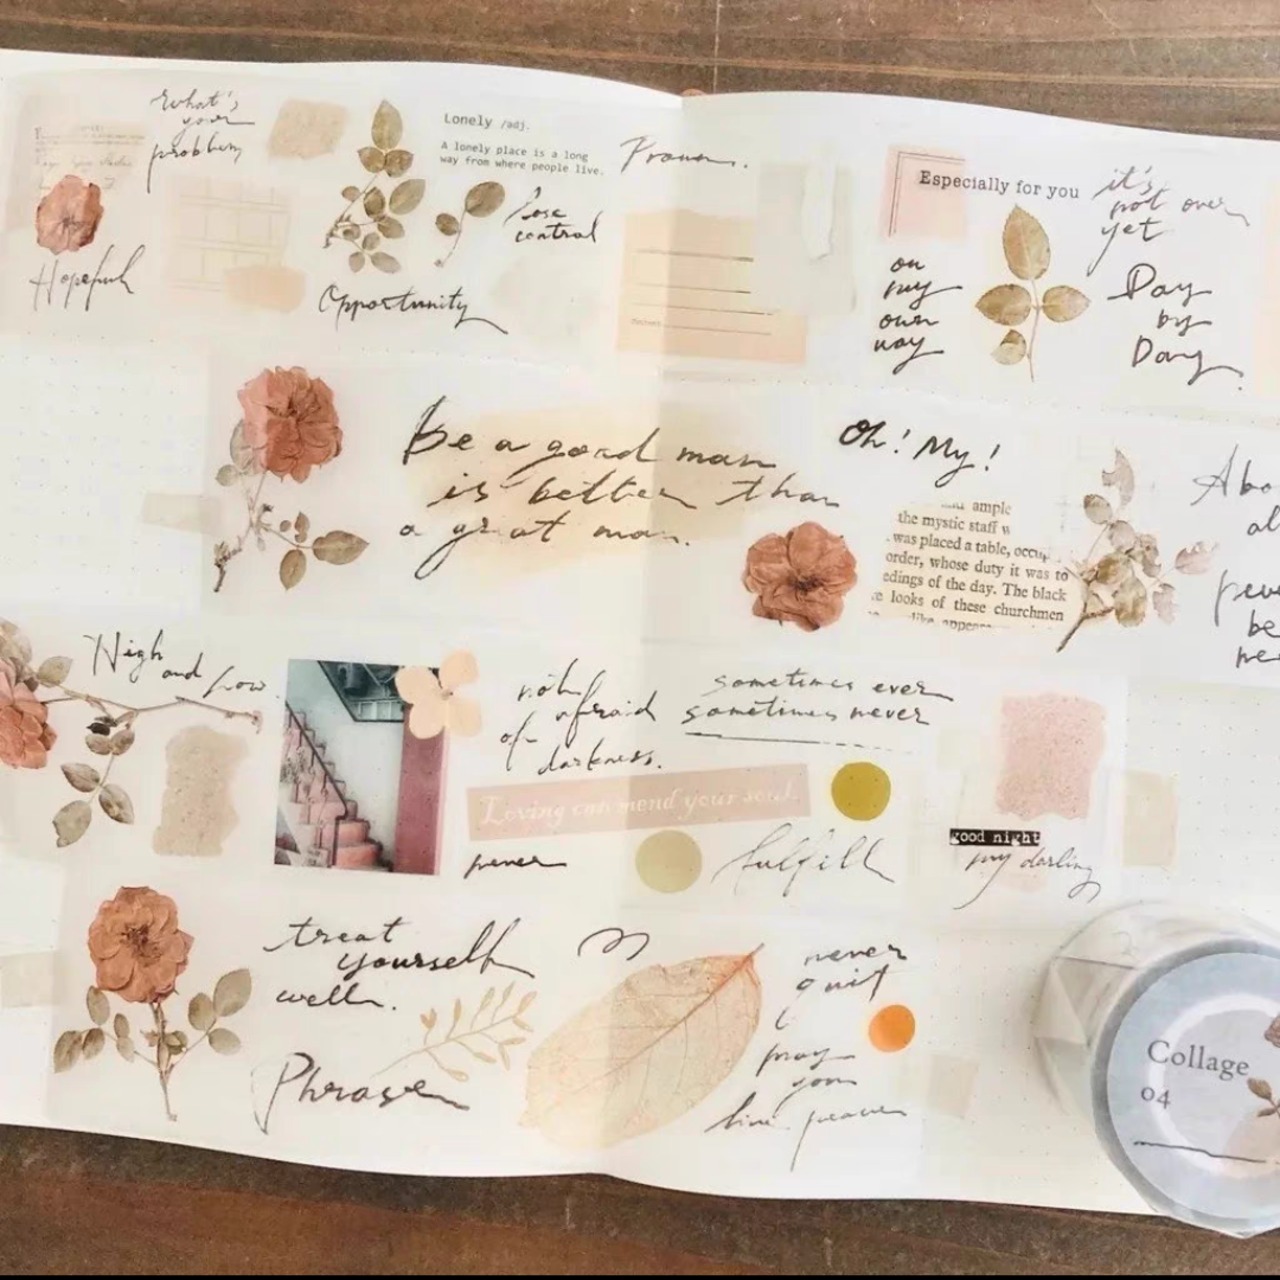 what's
your
problem
Hopeful
Lonely /adj.
A lonely place is a long
way from where people live.
Lose
control
Opportunity
Especially for you
it's
not over
yet
on
my
own
way
Day
by
Day.
Be a good man
is better than
a great man.
Oh! My!
ample
the mystic staff w
was placed a table, occup
order, whose duty it was to
edings of the day. The black
looks of these churchmen
like appear
Abo
al
be
High
and low.
not
afraid
of
darkness.
sometimes ever
sometimes never
Loving can mend your soul.
fulfill
good night
my darling
treat
yourself
well.
Phrase
never
quit
pray
you
Collage
04